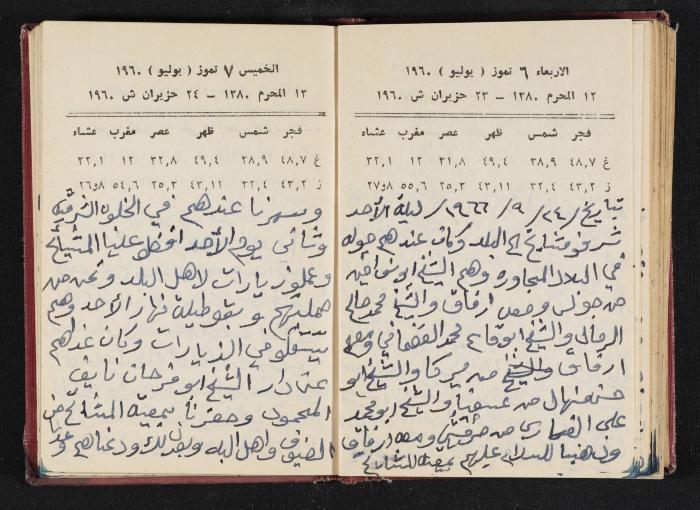 الاربعاء ٦ تموز ( يوليو ) ١٩٦٠
١٢ المحرم ١٣٨٠ – ٢٣ حزيران ش ١٩٦٠
فجر شمس ظهر عصر مغرب عشاء
غ ٤٨,٧ ٣٨,٩ ٤٩,٤ ٣١,٨ ١٢ ٣٢,١
ز ٤٣,٢ ٣٢,٤ ٤٣,١١ ٢٥,٣ ٥٥,٦ ٢٧,٨
بتاريخ /٢٤/ ٩/ ١٩٦٦/ ليلة الأحد
شرفو مشايخ الى البلد وكان عندهم جوله
في البلاد المجاوره وهم الشيخ ابو
من جولس ومعه ارفاق والشيخ محمد صالح
والشيخ ابو محمد ومعه
ارفاق والشيخ من والشيخ ابو
حسن منهال من عسفيا والشيخ ابو محمد
علي من ومعه ارفاق
وذهبنا للسلام عليهم بمعية المشايخ
الخميس ٧ تموز ( يوليو ) ١٩٦٠
١٣ المحرم ١٣٨٠ – ٢٤ حزيران ش ١٩٦٠
فجر شمس ظهر عصر مغرب عشاء
غ ٤٨,٧ ٣٨,٩ ٤٩,٤ ٣٢,٨ ١٢ ٣٢,١
ز ٤٣,٢ ٣٢,٤ ٤٣,١١ ٢٥,٣ ٥٤,٦ ٢٦,٨
وسهرنا عندهم في الخلوه الشرقيه
وثاني يوم الأحد علينا المشايخ
وعملو زيارات لاهل البلد ونحن من
جملتهم وبقو طيلة نهار الأحد وهم
في الزيارات وكان غداهم
عند دار الشيخ ابو فرحان نايف
وحضرنا بمعية المشايخ
الضيوف واهل البلد وبعد ذلك ودعناهم